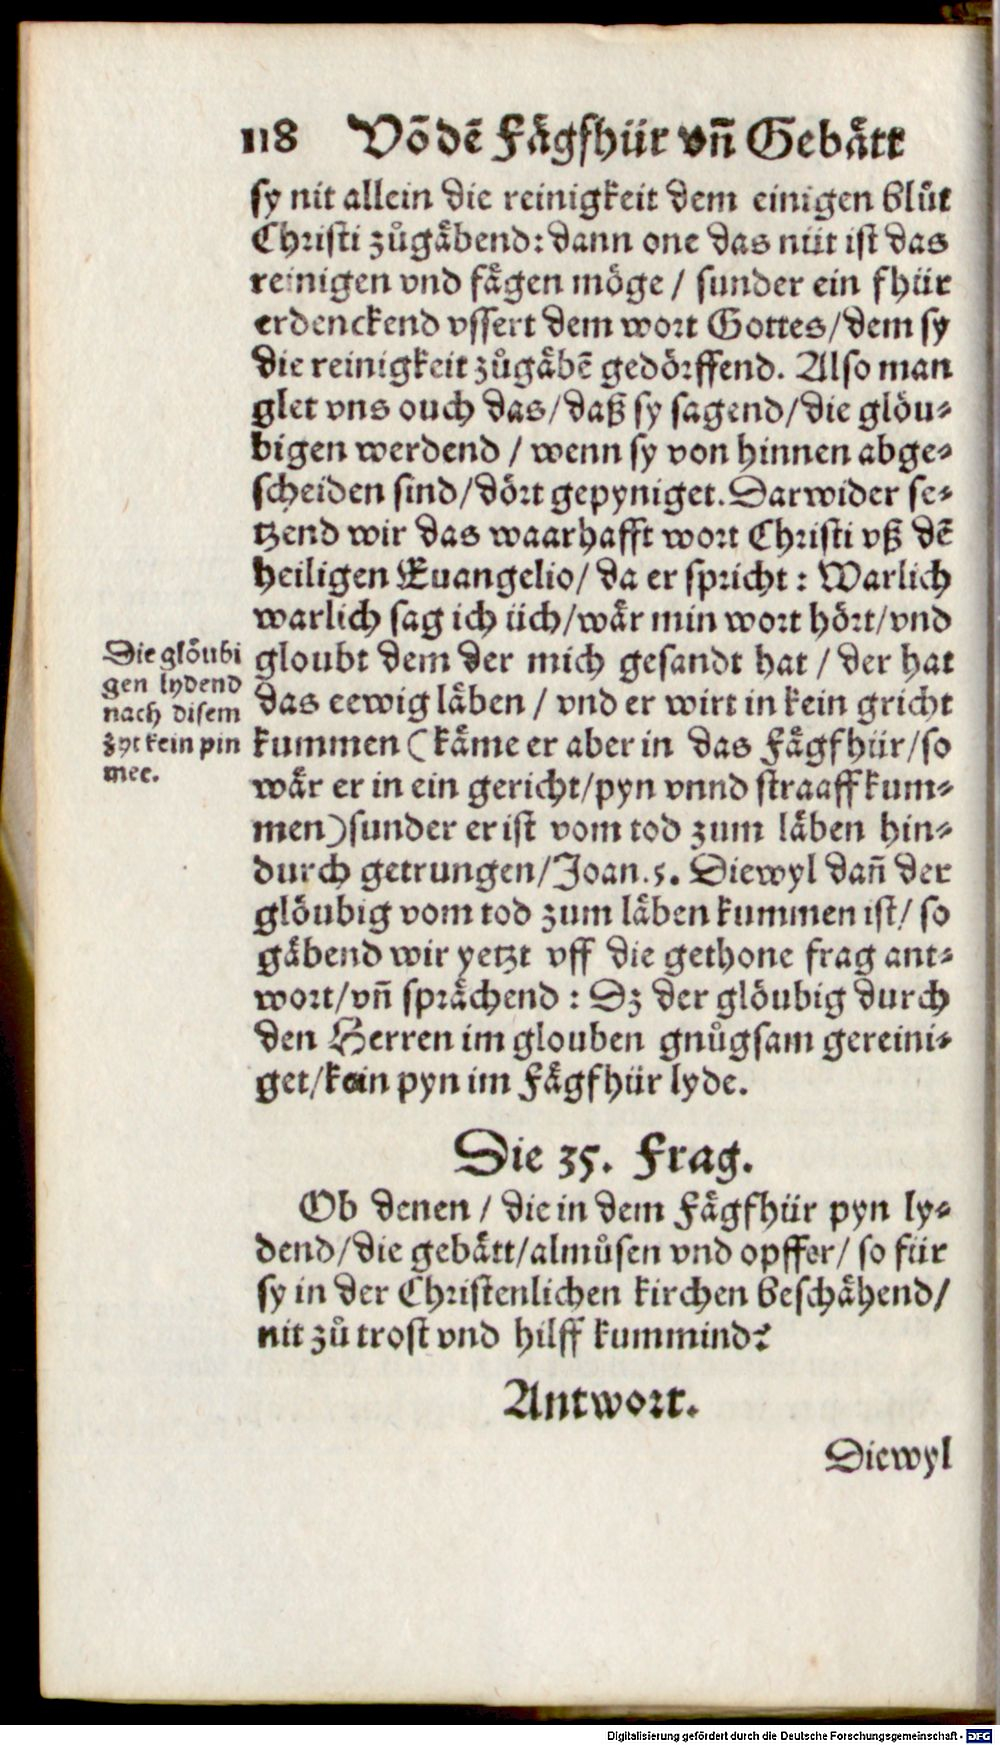 118 Võ dē Fägfhür vn̄ Gebätt
sy nit allein die reinigkeit dem einigen blůt
Christi zůgäbend: dann one das nüt ist das
reinigen vnd fägen möge / sunder ein fhür
erdenckend vssert dem wort Gottes / dem sy
die reinigkeit zůgäbē gedörffend. Also man
glet vns ouch das / daß sy sagend / die glöu⸗
bigen werdend / wenn sy von hinnen abge⸗
scheiden sind / dört gepyniget. Darwider se⸗
tzend wir das waarhafft wort Christi vß dē
heiligen Euangelio / da er spricht: Warlich
warlich sag ich üch / wär min wort hört / vnd
gloubt dem der mich gesandt hat / der hat
das eewig läben / vnd er wirt in kein gricht
kummen (käme er aber in das Fägfhür / so
wär er in ein gericht / pyn vnnd straaff kum⸗
men) sunder er ist vom tod zum läben hin⸗
durch getrungen / Joan. 5. Diewyl dan̄ der
glöubig vom tod zum läben kummen ist / so
gäbend wir yetzt vff die gethone frag ant⸗
wort / vn̄ sprächend: Dz der glöubig durch
den Herren im glouben gnůgsam gereini⸗
get / kein pyn im Fägfhür lyde.
Die glöubi
gen lydend
nach disem
zyt kein pin
mee.
Die 35. Frag.
Ob denen / die in dem Fägfhür pyn ly⸗
dend / die gebätt / almůsen vnd opffer / so für
sy in der Christenlichen kirchen beschähend /
nit zů trost vnd hilff kummind?
Antwort.
Diewyl
Digitalisierung gefördert durch die Deutsche Forschungsgemeinschaft - DFG